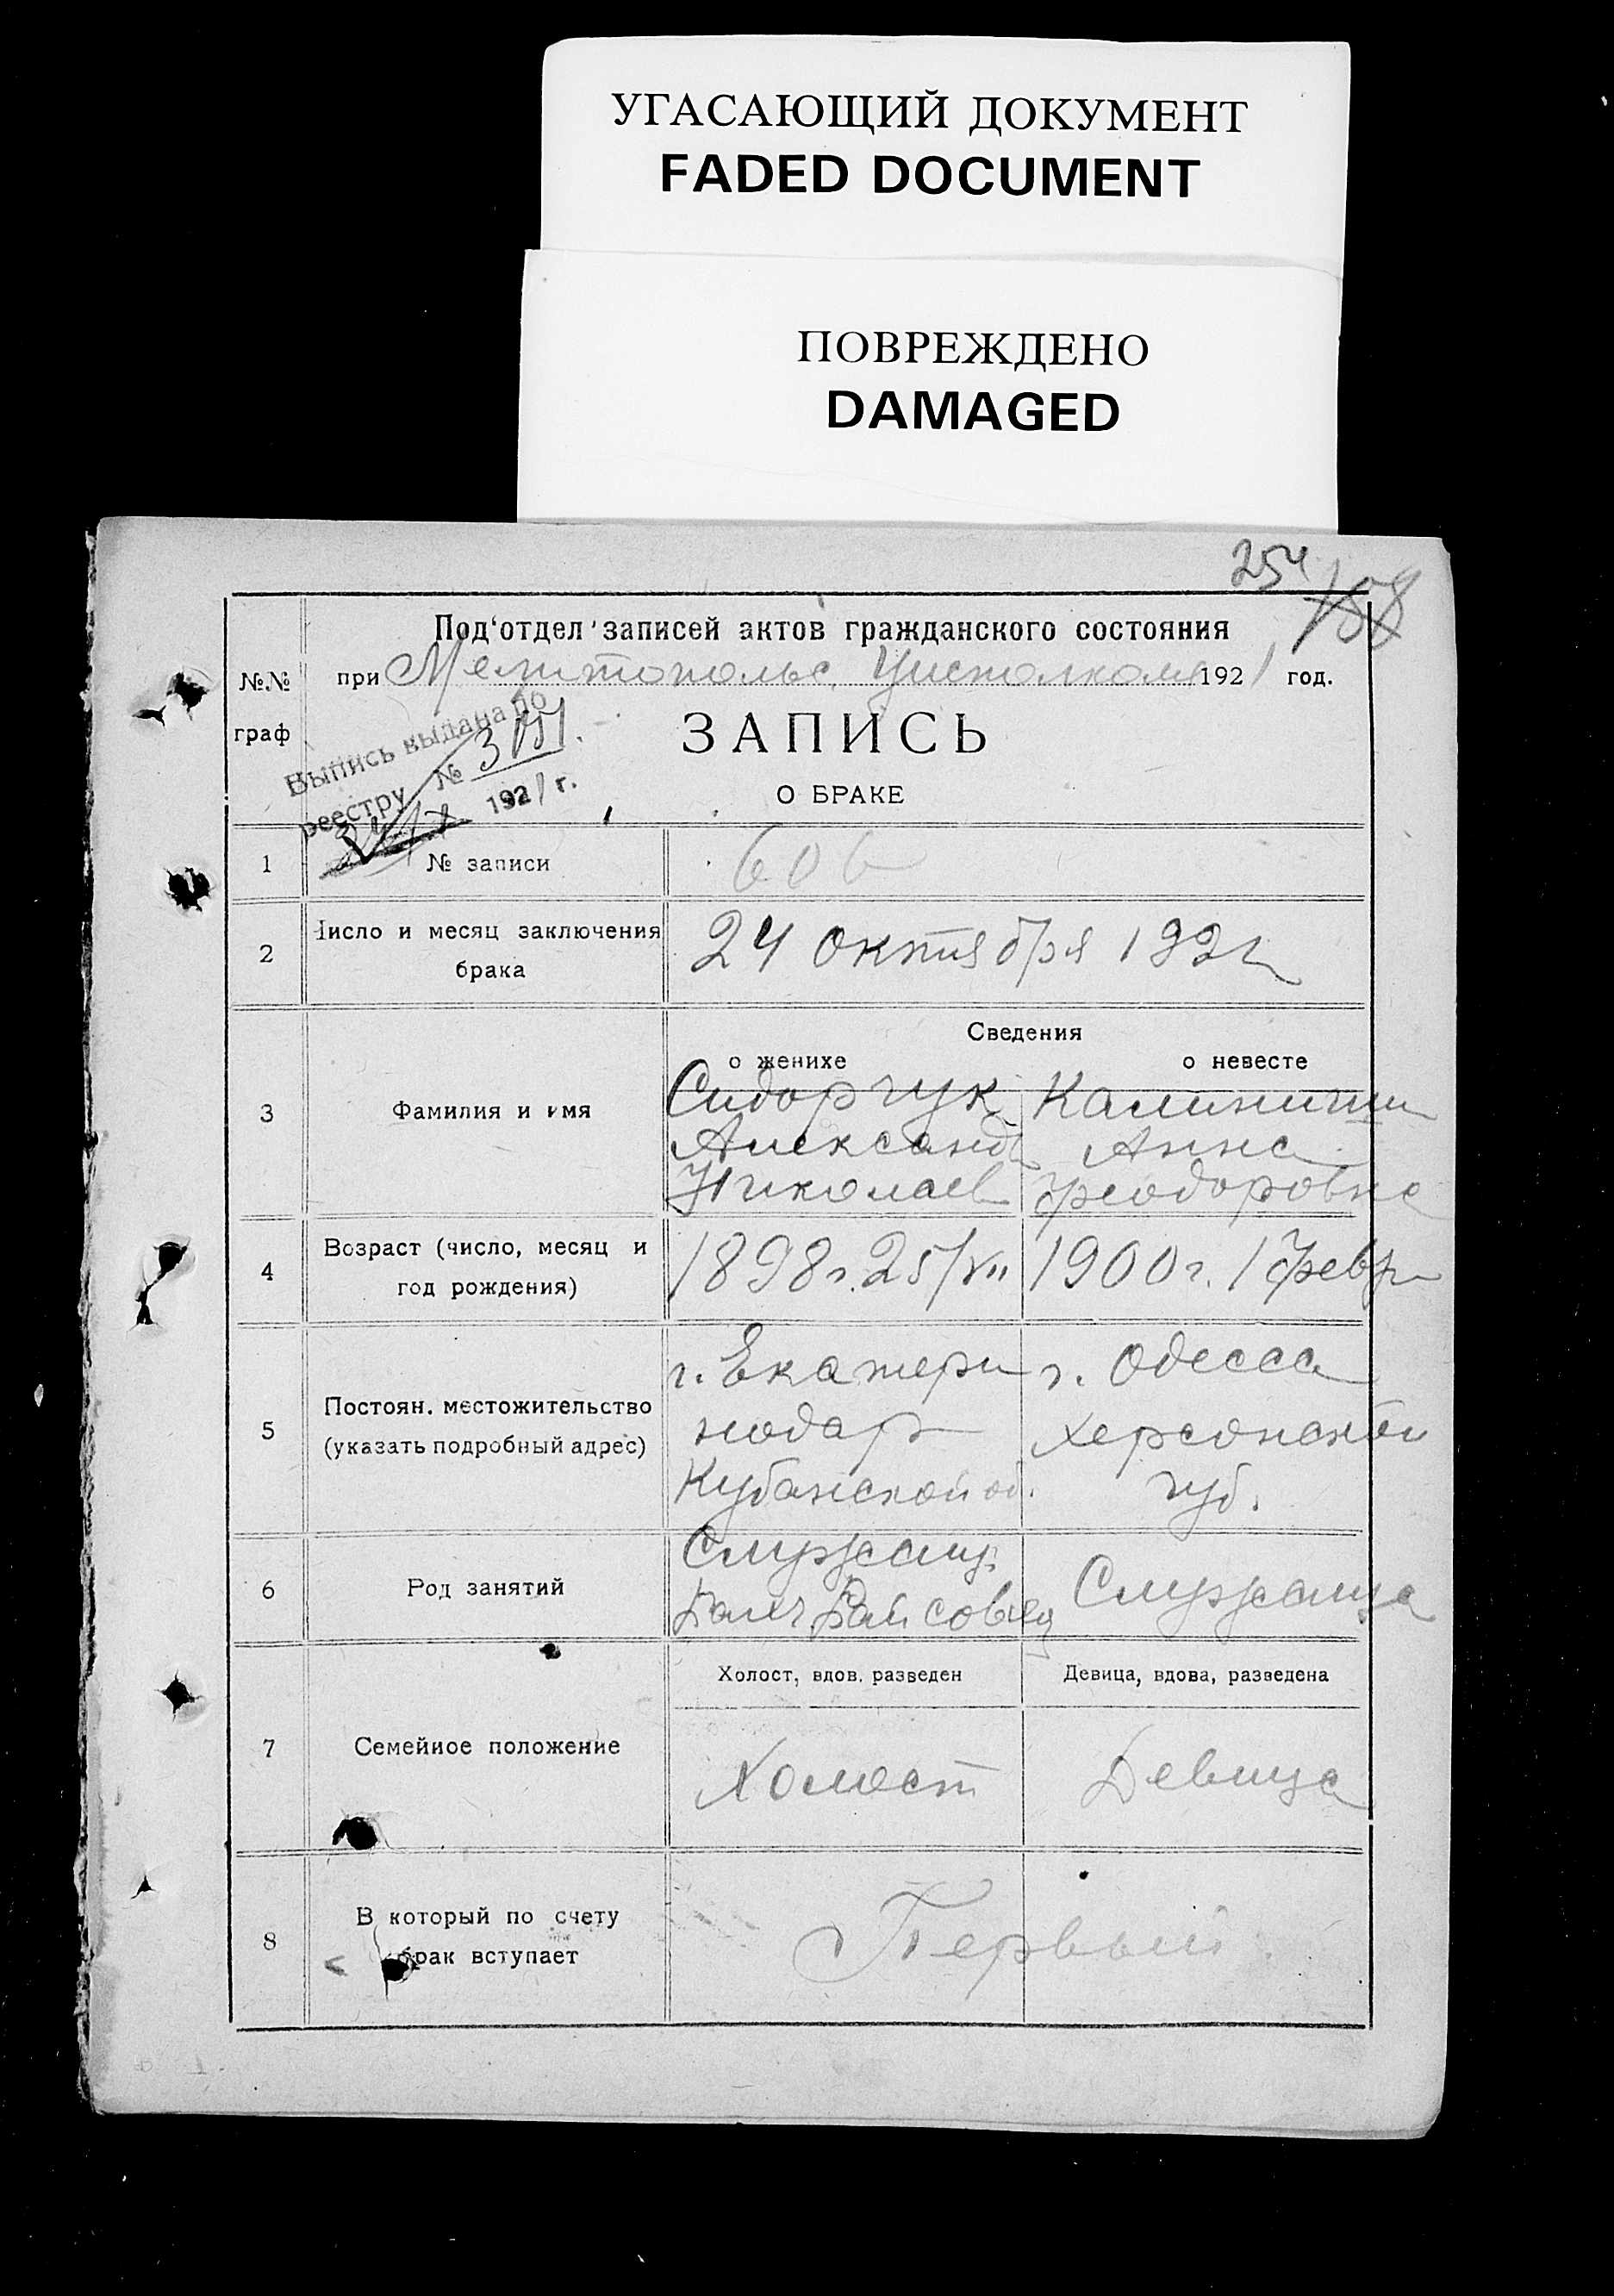 УГАСАЮЩИЙ ДОКУМЕНТ
FADED DOCUMENT
ПОВРЕЖДЕНО
DAMAGED
254
158
Под'отдел записей актов гражданского состояния
№№ граф
при Мелитопольс. Уисполкома 1921 год.
Выпись выдана по
реестру №
1921 г.
ЗАПИСЬ
О БРАКЕ
1 № записи 606
2 Число и месяц заключения брака
24 октября 1921
Сведения
о женихе о невесте
3 Фамилия и имя
Сидорчук
Александр
Николаев
Анна
Феодоровна
4 Возраст (число, месяц и год рождения)
1898 г. 25/VII 1900 г. 1 февр
5 Постоян. местожительство (указать подробный адрес)
г. Екатери
нодар
Кубанской об.
г. Одесса
Херсонской
губ.
6 Род занятий
Служащ.
Служащая
7 Семейное положение
Холост, вдов. разведен Девица, вдова, разведена
Холост Девица
8 В который по счету брак вступает
Первый